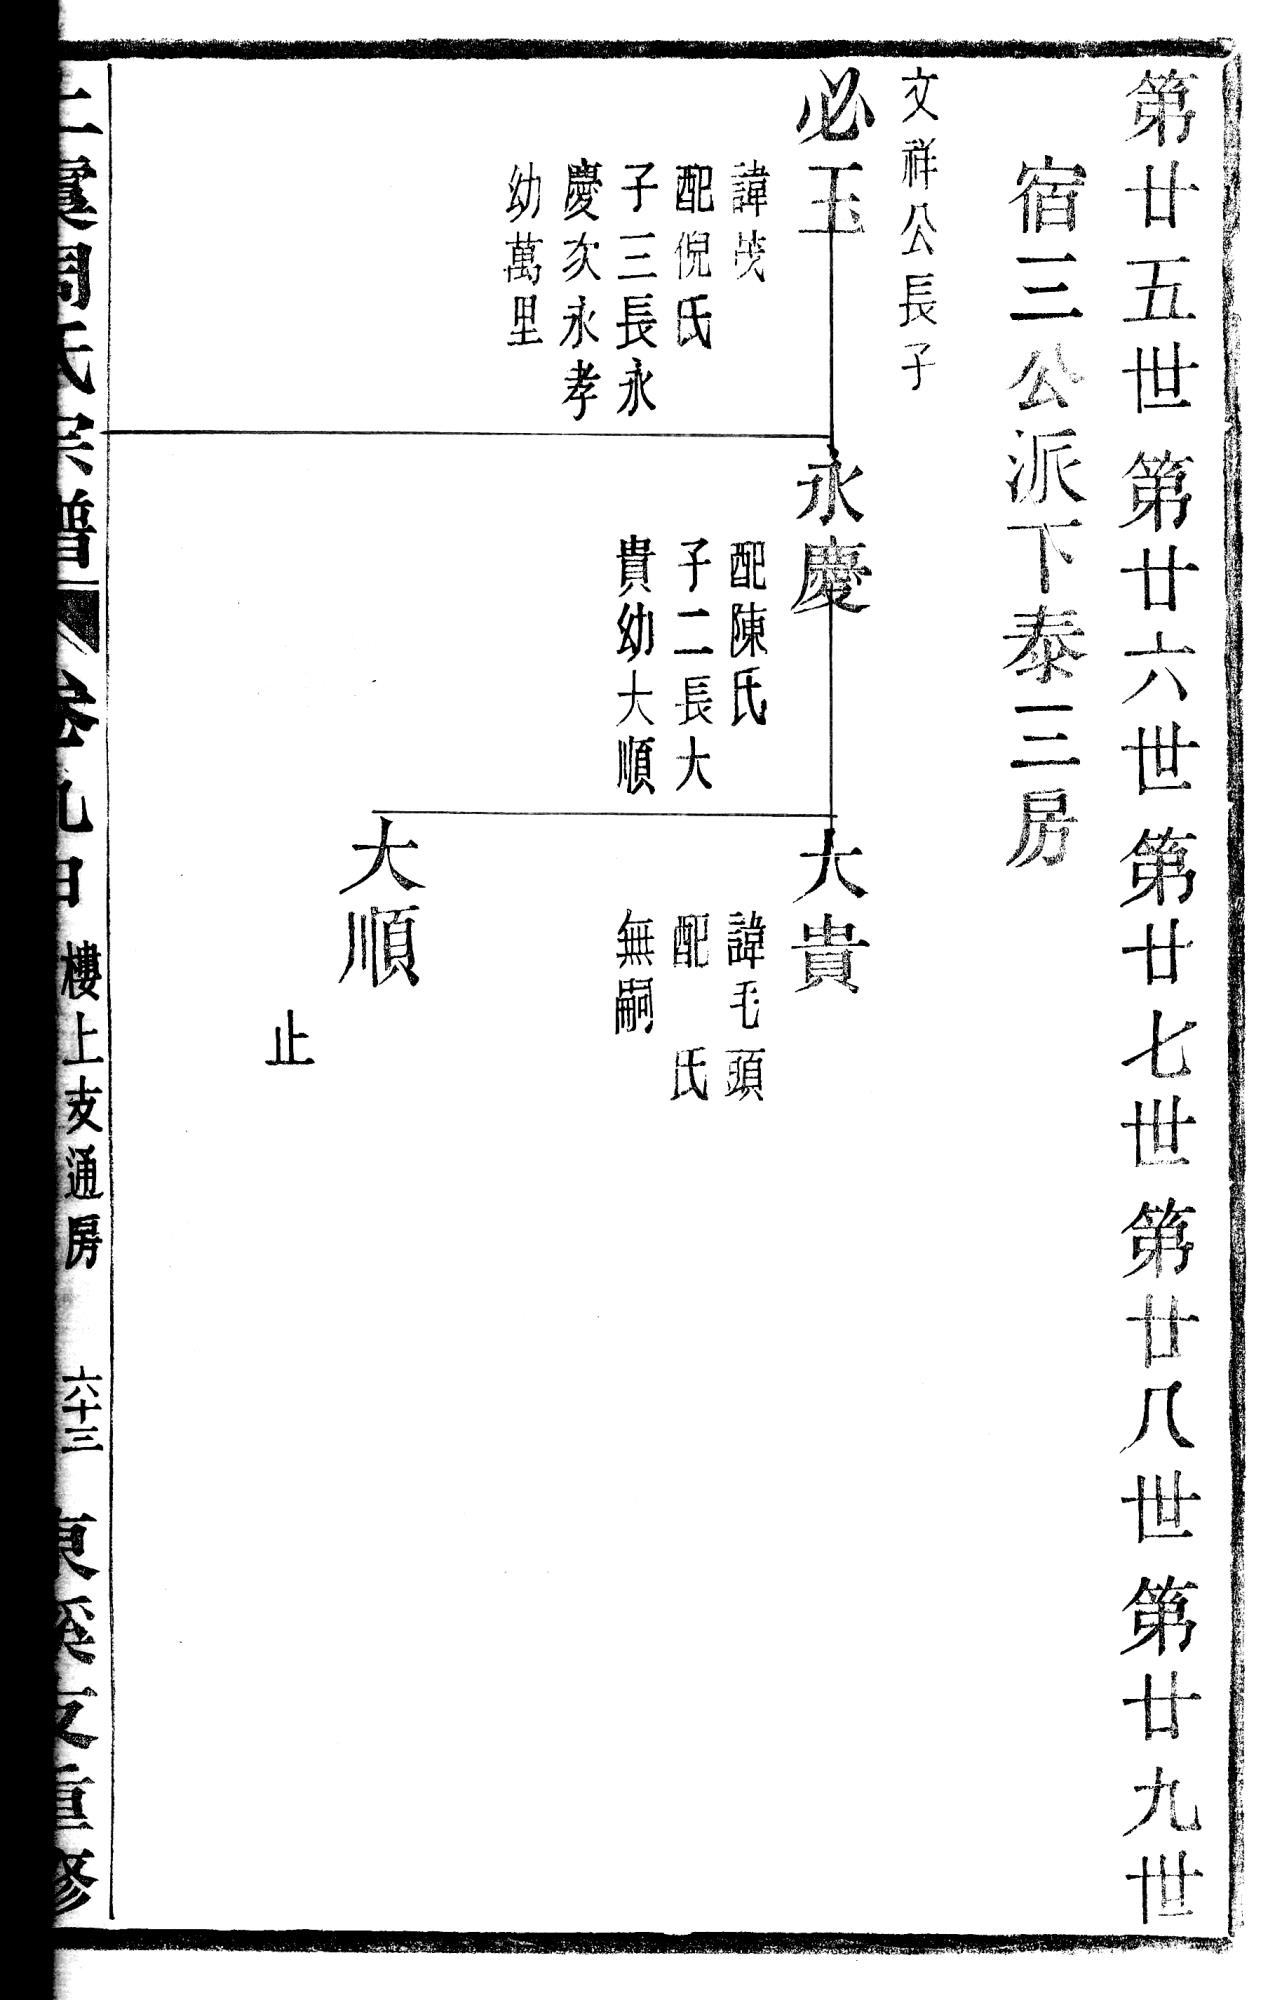 第廿五世 第廿六世 第廿七世 第廿八世 第廿九世
宿三公派下泰三房
文祥公長子
必玉
諱茂
配倪氏
子三長永
慶次永孝
幼萬里
永慶
配陳氏
子二長大
貴幼大順
大貴
諱毛頭
配 氏
無嗣
大順
止
上虞周氏宗譜 卷九中 樓上支通房 六十三 東溪支重修